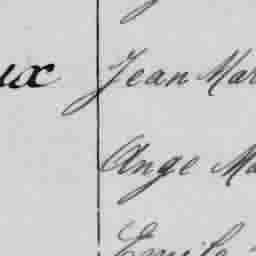 ux Jean Mar
Ange Ma
Emile